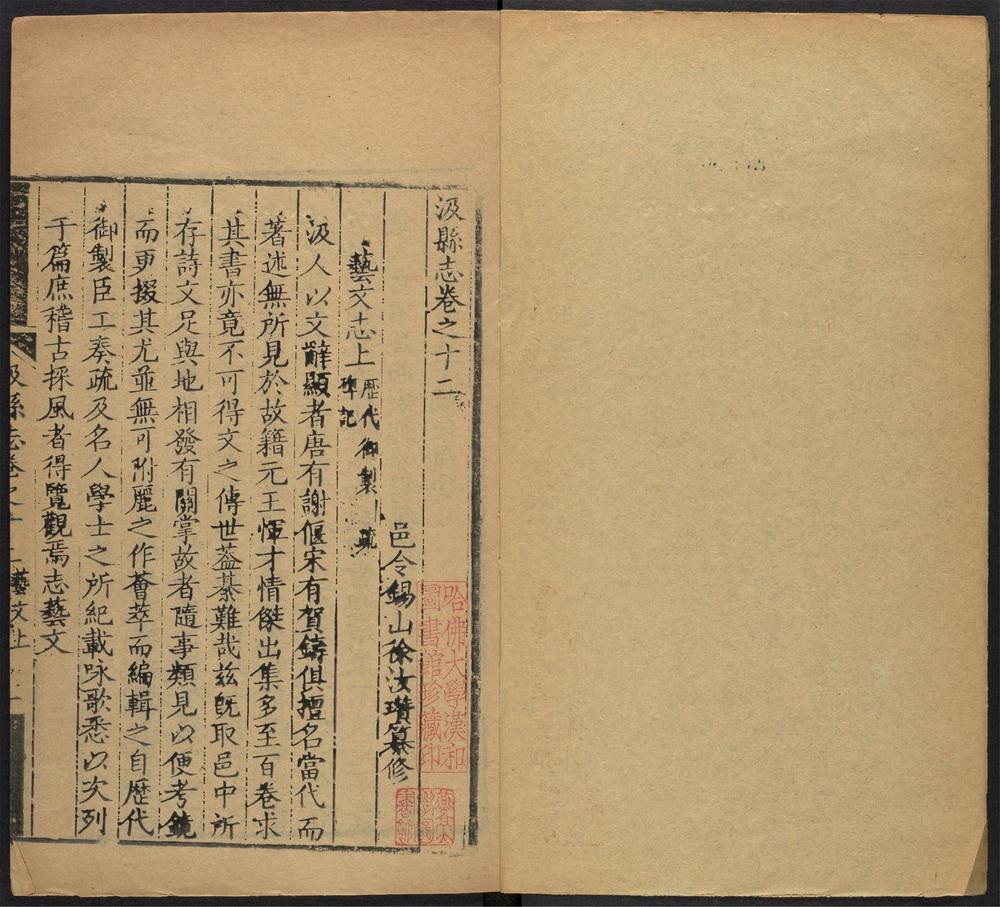 汲縣志卷之十二
邑令錫山徐汝瓚纂修
藝文志上 歷代御製 疏
碑記
汲人以文辭顯者唐有謝偃宋有賀鑄俱擅名當代而
著述無所見於故籍元王惲才情傑出集多至百卷求
其書亦竟不可得文之傳世葢綦難哉兹旣取邑中所
存詩文足與地相發有關掌故者隨事類見以便考鏡
而更掇其尤並無可附麗之作薈萃而編輯之自歷代
御製臣工奏疏及名人學士之所紀載咏歌悉以次列
于篇庶稽古採風者得覽觀焉志藝文
汲縣志卷之十二 藝文上
哈佛大學漢和
圖書館珍藏印